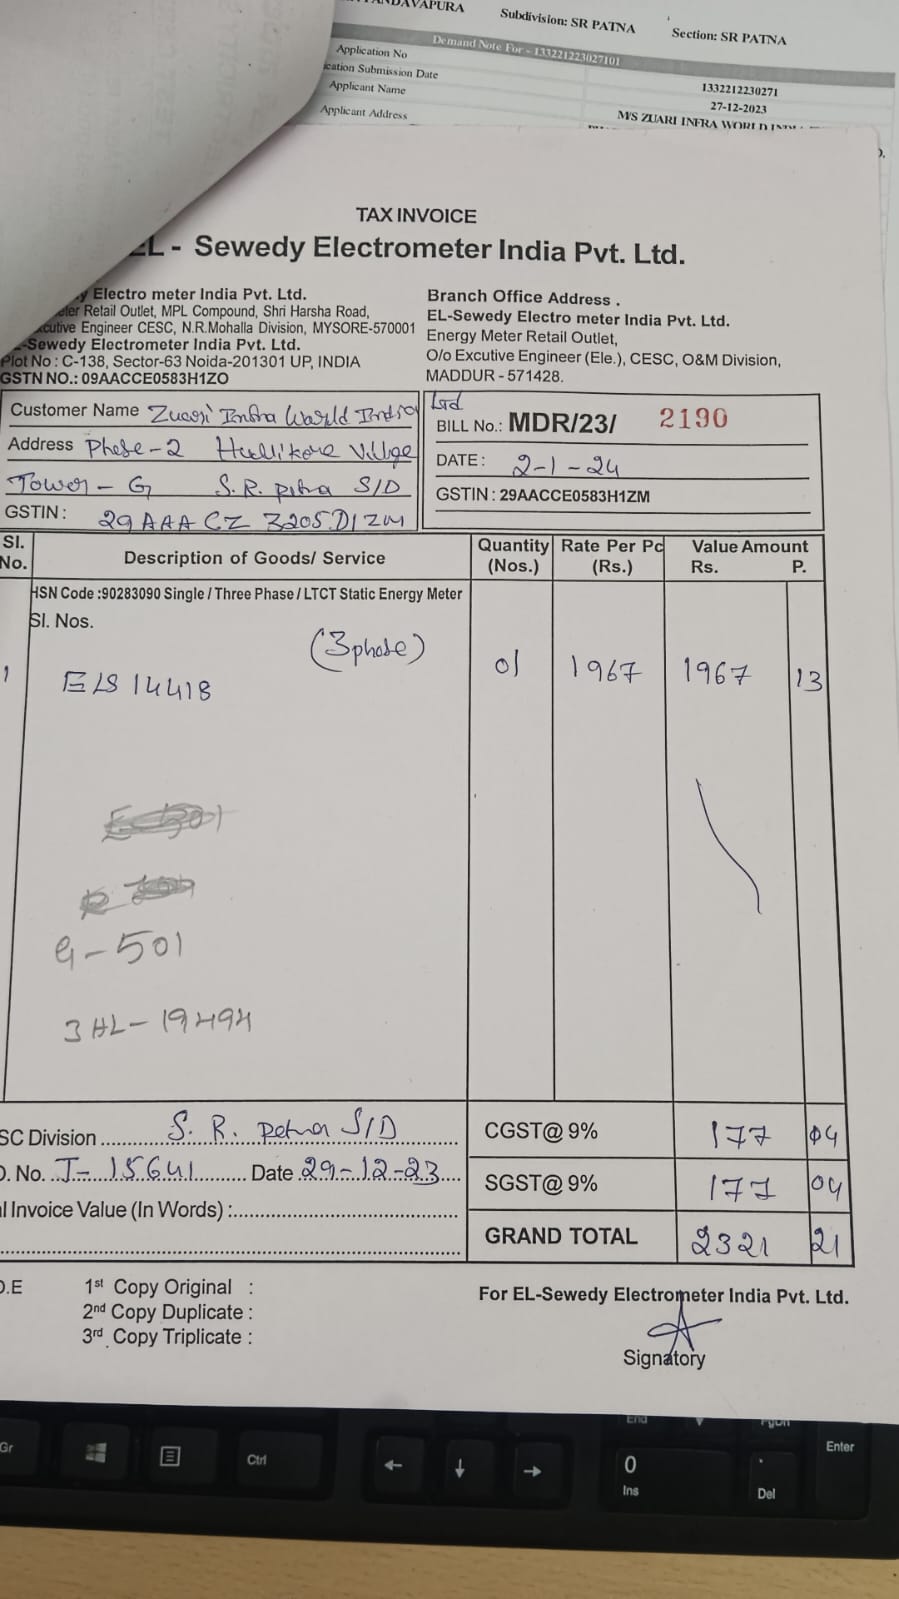 ANDAVAPURA Subdivision: SR PATNA Section: SR PATNA
Demand Note For - 133221223027101
Application No 1332212230271
cation Submission Date 27-12-2023
Applicant Name M/S ZUARI INFRA WORLD
Applicant Address
TAX INVOICE
EL - Sewedy Electrometer India Pvt. Ltd.
y Electro meter India Pvt. Ltd.
eter Retail Outlet, MPL Compound, Shri Harsha Road,
xcutive Engineer CESC, N.R.Mohalla Division, MYSORE-570001
-Sewedy Electrometer India Pvt. Ltd.
Plot No : C-138, Sector-63 Noida-201301 UP, INDIA
GSTN NO.: 09AACCE0583H1ZO
Branch Office Address .
EL-Sewedy Electro meter India Pvt. Ltd.
Energy Meter Retail Outlet,
O/o Excutive Engineer (Ele.), CESC, O&M Division,
MADDUR - 571428.
Customer Name Zuari Infra World India Ltd
Address Phase-2 Hullikere Village
Tower - G S.R. patna S/D
GSTIN : 29AAACZ3205D1ZM
BILL No.: MDR/23/ 2190
DATE : 2-1-24
GSTIN : 29AACCE0583H1ZM
Sl. No. Description of Goods/ Service Quantity (Nos.) Rate Per Pc (Rs.) Value Amount Rs. P.
HSN Code :90283090 Single / Three Phase / LTCT Static Energy Meter
Sl. Nos.
(3 phase)
1 ELS 14418 01 1967 1967 13
G-501
3HL-19494
SC Division S. R. patna S/D
O. No. J-15641 Date 29-12-23
l Invoice Value (In Words) :
CGST@ 9% 177 04
SGST@ 9% 177 04
GRAND TOTAL 2321 21
O.E 1st Copy Original :
2nd Copy Duplicate :
3rd Copy Triplicate :
For EL-Sewedy Electrometer India Pvt. Ltd.
Signatory
End PgDn
Gr Ctrl ← ↓ → 0 Ins . Del Enter